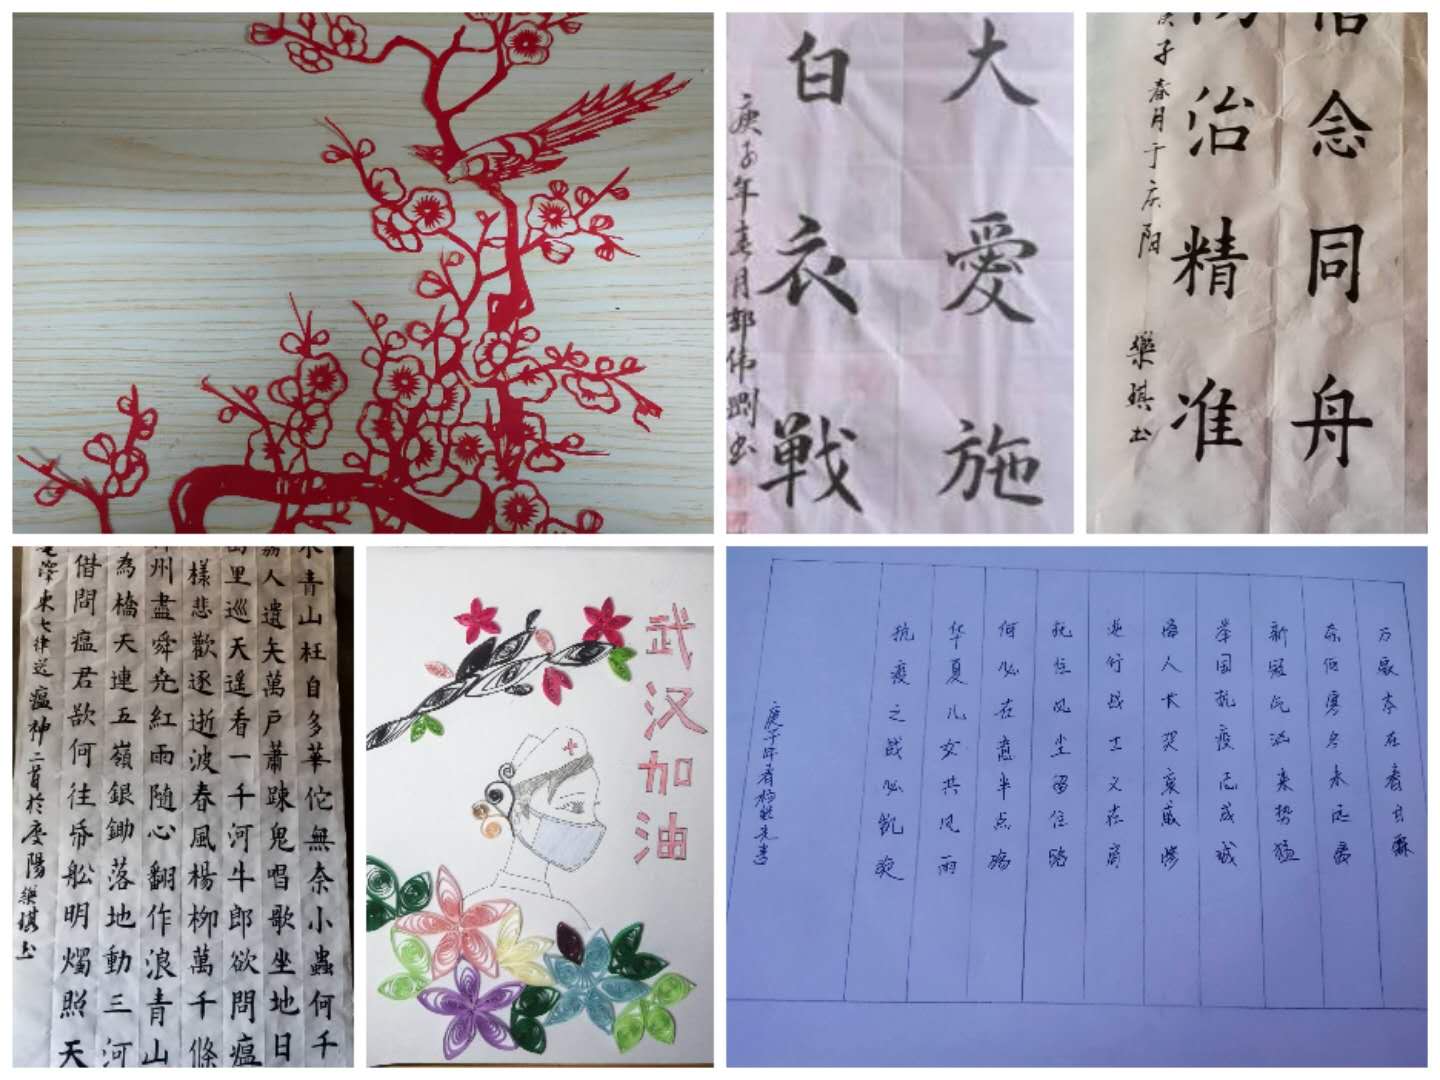 大愛施
白衣戰
庚子年春月郭伟剛书
念同舟
治精准
子春月于庆阳 樂琪书
水青山枉自多華佗無奈小蟲何千
人遺矢萬戶蕭踈鬼唱歌坐地日
里巡天遙看一千河牛郎欲問瘟
樣悲歡逐逝波春風楊柳萬千條
州盡舜尭紅雨随心翻作浪青山
為橋天連五嶺銀鋤落地動三河
借問瘟君欲何往帋船明燭照天
毛澤東七律送瘟神二首於慶陽樂琪书
武汉加油
万家本在春日
奈何寒冬未远
新冠汹来势猛
举国抗疫已成城
人哀戚惨
逆行战士又在肩
风尘留住路
何必在意半点
华夏儿女共风雨
抗疫之战必凯旋
庚子年春